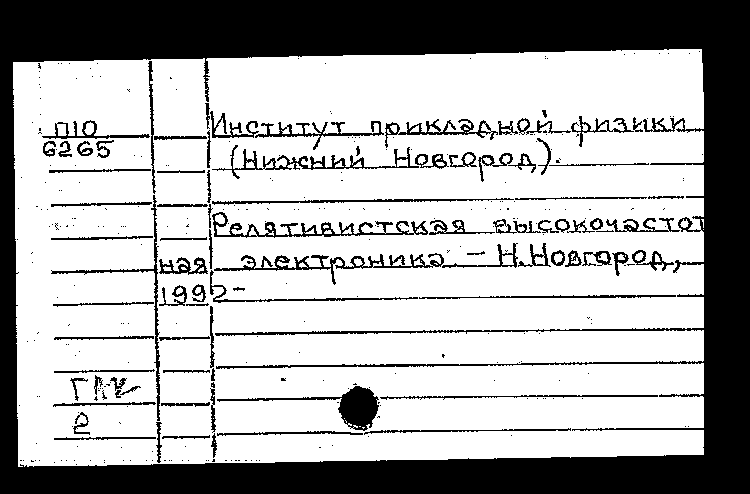 П10
6265
Институт прикладной физики
(Нижний Новгород).
Релятивистская высокочастот
ная электроника. – Н.Новгород,
1992-
2